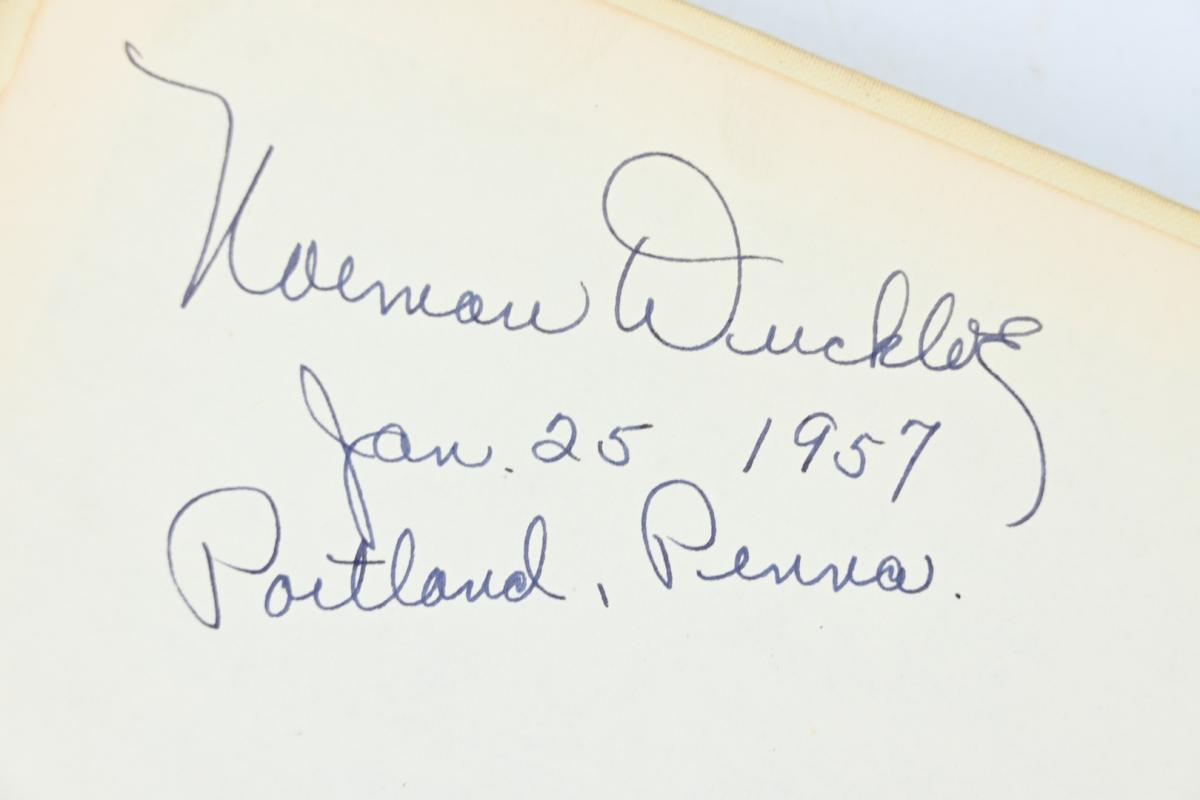 Norman
Jan. 25 1957
Portland, Penna.